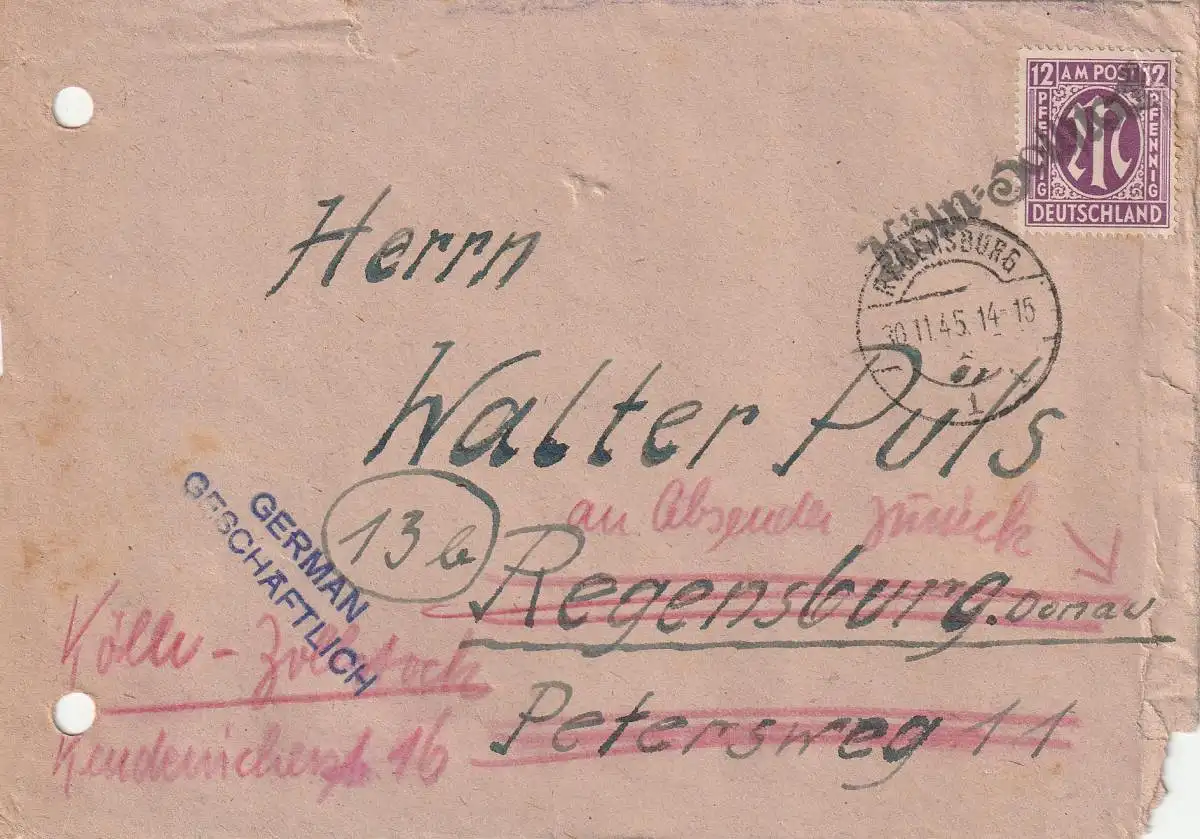 12 AM POST 12
PFENNIG
PFENNIG
DEUTSCHLAND
Köln-Zollstock
REGENSBURG
30.11.45.14-15
1
Herrn
Walter Puls
an Absender zurück
13b
Regensburg.Donau
Petersweg 11
GERMAN
GESCHÄFTLICH
Köln - Zollstock
Kendenicherstr. 16